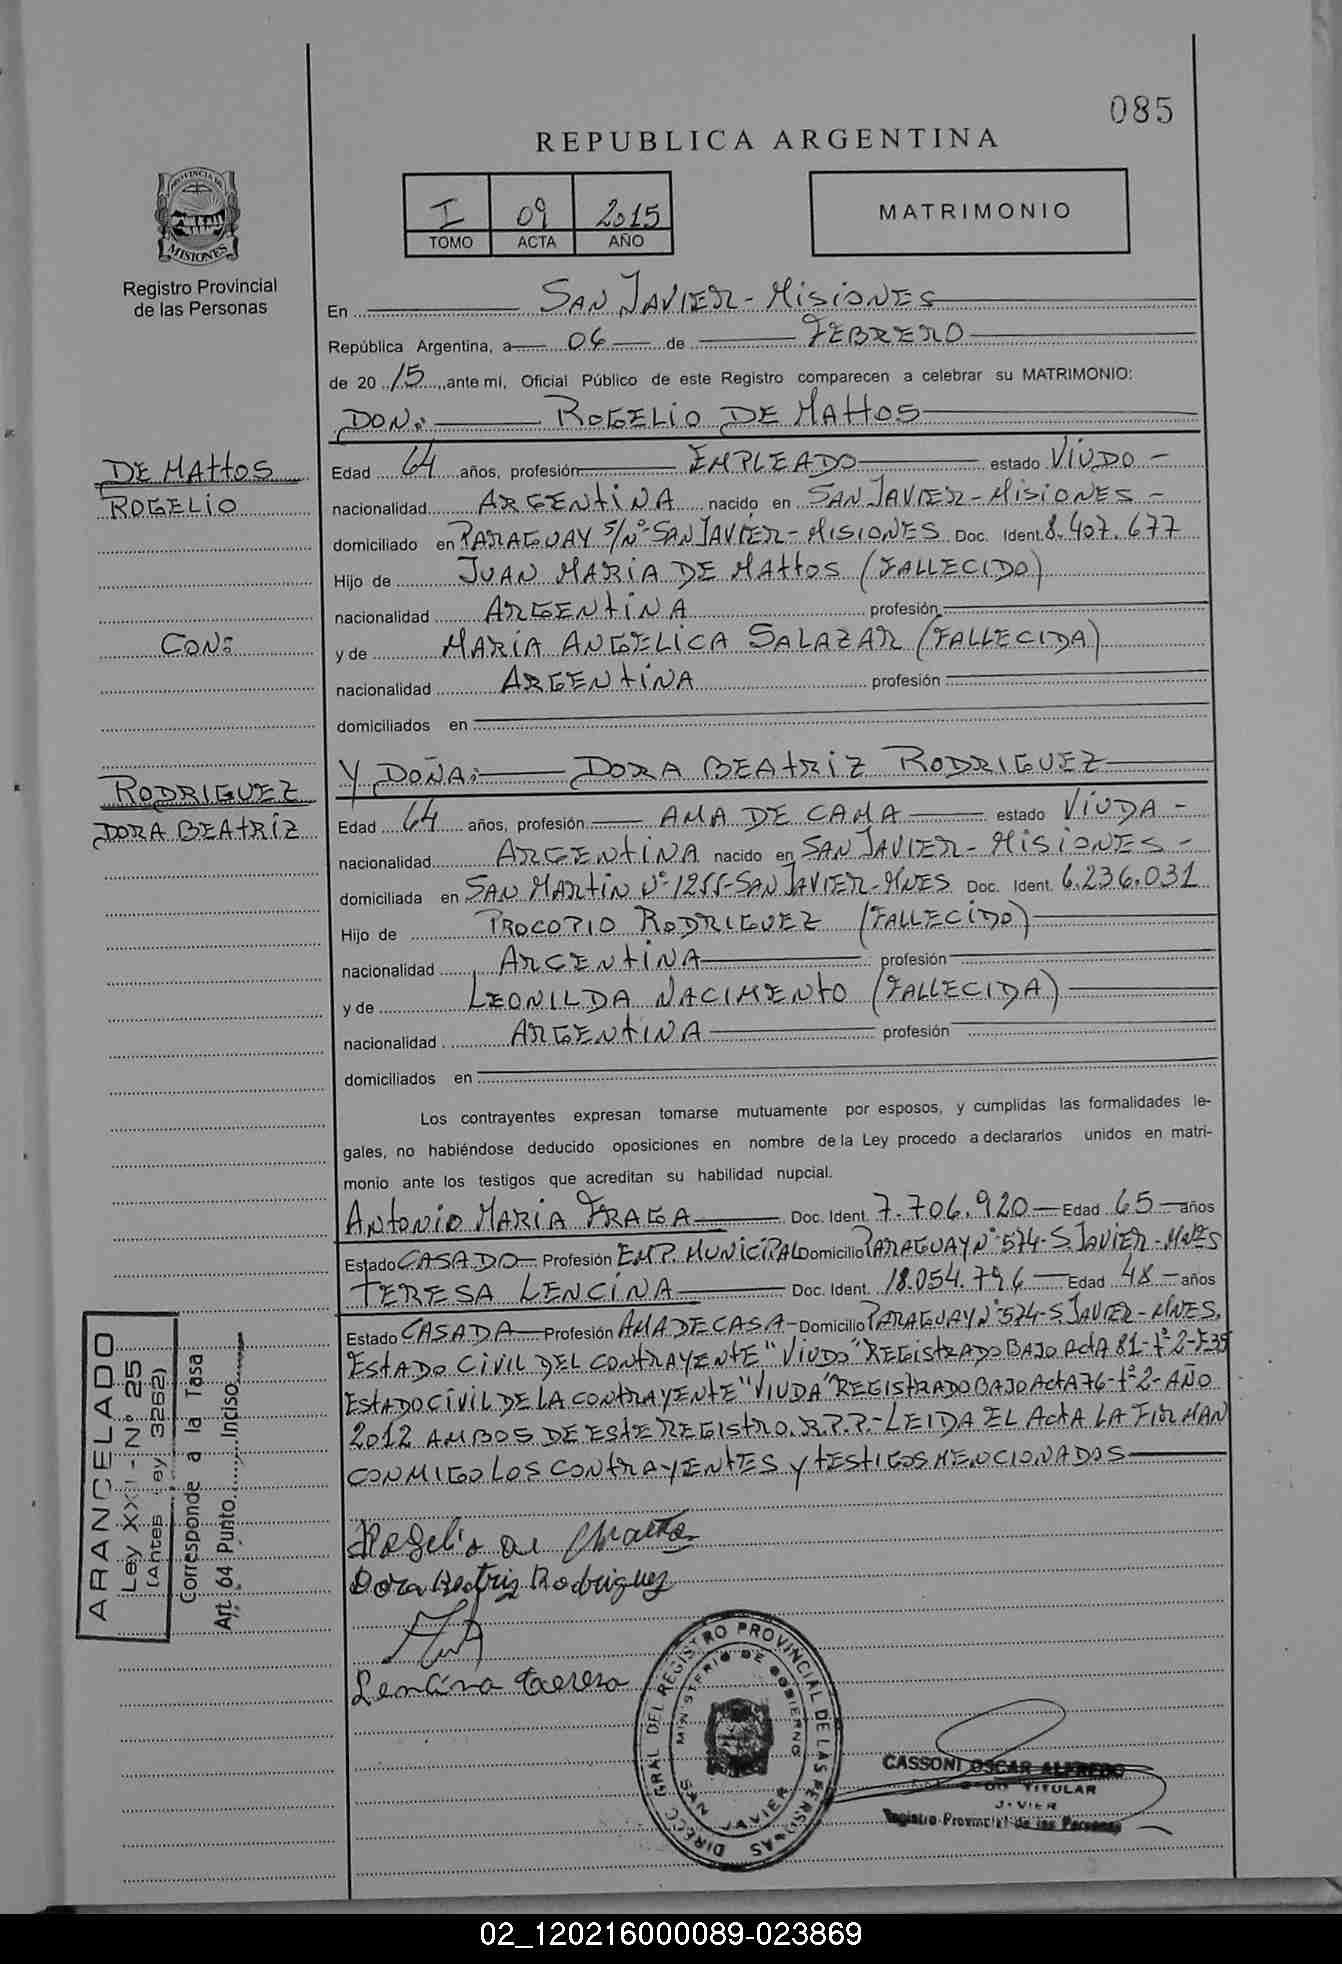 085
REPUBLICA ARGENTINA
PROVINCIA DE
MISIONES
Registro Provincial
de las Personas
I 09 2015
TOMO ACTA AÑO
MATRIMONIO
En SAN JAVIER - MISIONES
República Argentina, a 06 de FEBRERO
de 20 15, ante mí, Oficial Público de este Registro comparecen a celebrar su MATRIMONIO:
DON: ROGELIO DE MATTOS
DE MATTOS
ROGELIO
CON:
RODRIGUEZ
DORA BEATRIZ
Edad 64 años, profesión EMPLEADO estado VIUDO -
nacionalidad ARGENTINA nacido en SAN JAVIER - MISIONES -
domiciliado en PARAGUAY S/Nº - SAN JAVIER - MISIONES Doc. Ident. 8.407.677
Hijo de JUAN MARIA DE MATTOS (FALLECIDO)
nacionalidad ARGENTINA profesión
y de MARIA ANGELICA SALAZAR (FALLECIDA)
nacionalidad ARGENTINA profesión
domiciliados en
Y DOÑA: DORA BEATRIZ RODRIGUEZ
Edad 64 años, profesión AMA DE CAMA estado VIUDA -
nacionalidad ARGENTINA nacido en SAN JAVIER - MISIONES -
domiciliada en SAN MARTIN Nº 1255 - SAN JAVIER - MNES Doc. Ident. 6.236.031
Hijo de PROCOPIO RODRIGUEZ (FALLECIDO)
nacionalidad ARGENTINA profesión
y de LEONILDA NACIMENTO (FALLECIDA)
nacionalidad ARGENTINA profesión
domiciliados en
Los contrayentes expresan tomarse mutuamente por esposos, y cumplidas las formalidades le-
gales, no habiéndose deducido oposiciones en nombre de la Ley procedo a declararlos unidos en matri-
monio ante los testigos que acreditan su habilidad nupcial.
ANTONIO MARIA FRAGA Doc. Ident. 7.706.920 Edad 65 años
Estado CASADO Profesión EMP. MUNICIPAL Domicilio PARAGUAY Nº 574 - S JAVIER - MNES
TERESA LENCINA Doc. Ident. 18.054.796 Edad 48 años
Estado CASADA Profesión AMA DE CASA - Domicilio PARAGUAY Nº 574 - S JAVIER - MNES.
ESTADO CIVIL DEL CONTRAYENTE "VIUDO" REGISTRADO BAJO ACTA 81 - Tº 2 -
ESTADO CIVIL DE LA CONTRAYENTE "VIUDA" REGISTRADO BAJO ACTA 76 - Tº 2 - AÑO
2012 AMBOS DE ESTE REGISTRO. R.P.P. - LEIDA EL ACTA LA FIRMAN
CONMIGO LOS CONTRAYENTES Y TESTIGOS MENCIONADOS
Rogelio de Mattos
Dora Beatriz Rodriguez
Lencina Teresa
ARANCELADO
Ley XXI - Nº 25
(Antes Ley 3262)
Corresponde a la Tasa
Art. 64 Punto Inciso
DIRECC GRAL DEL REGISTRO PROVINCIAL DE LAS PERSONAS
MINISTERIO DE GOBIERNO
SAN JAVIER
CASSONI OSCAR ALFREDO
TITULAR
Registro Provincial de las Personas
02_120216000089-023869